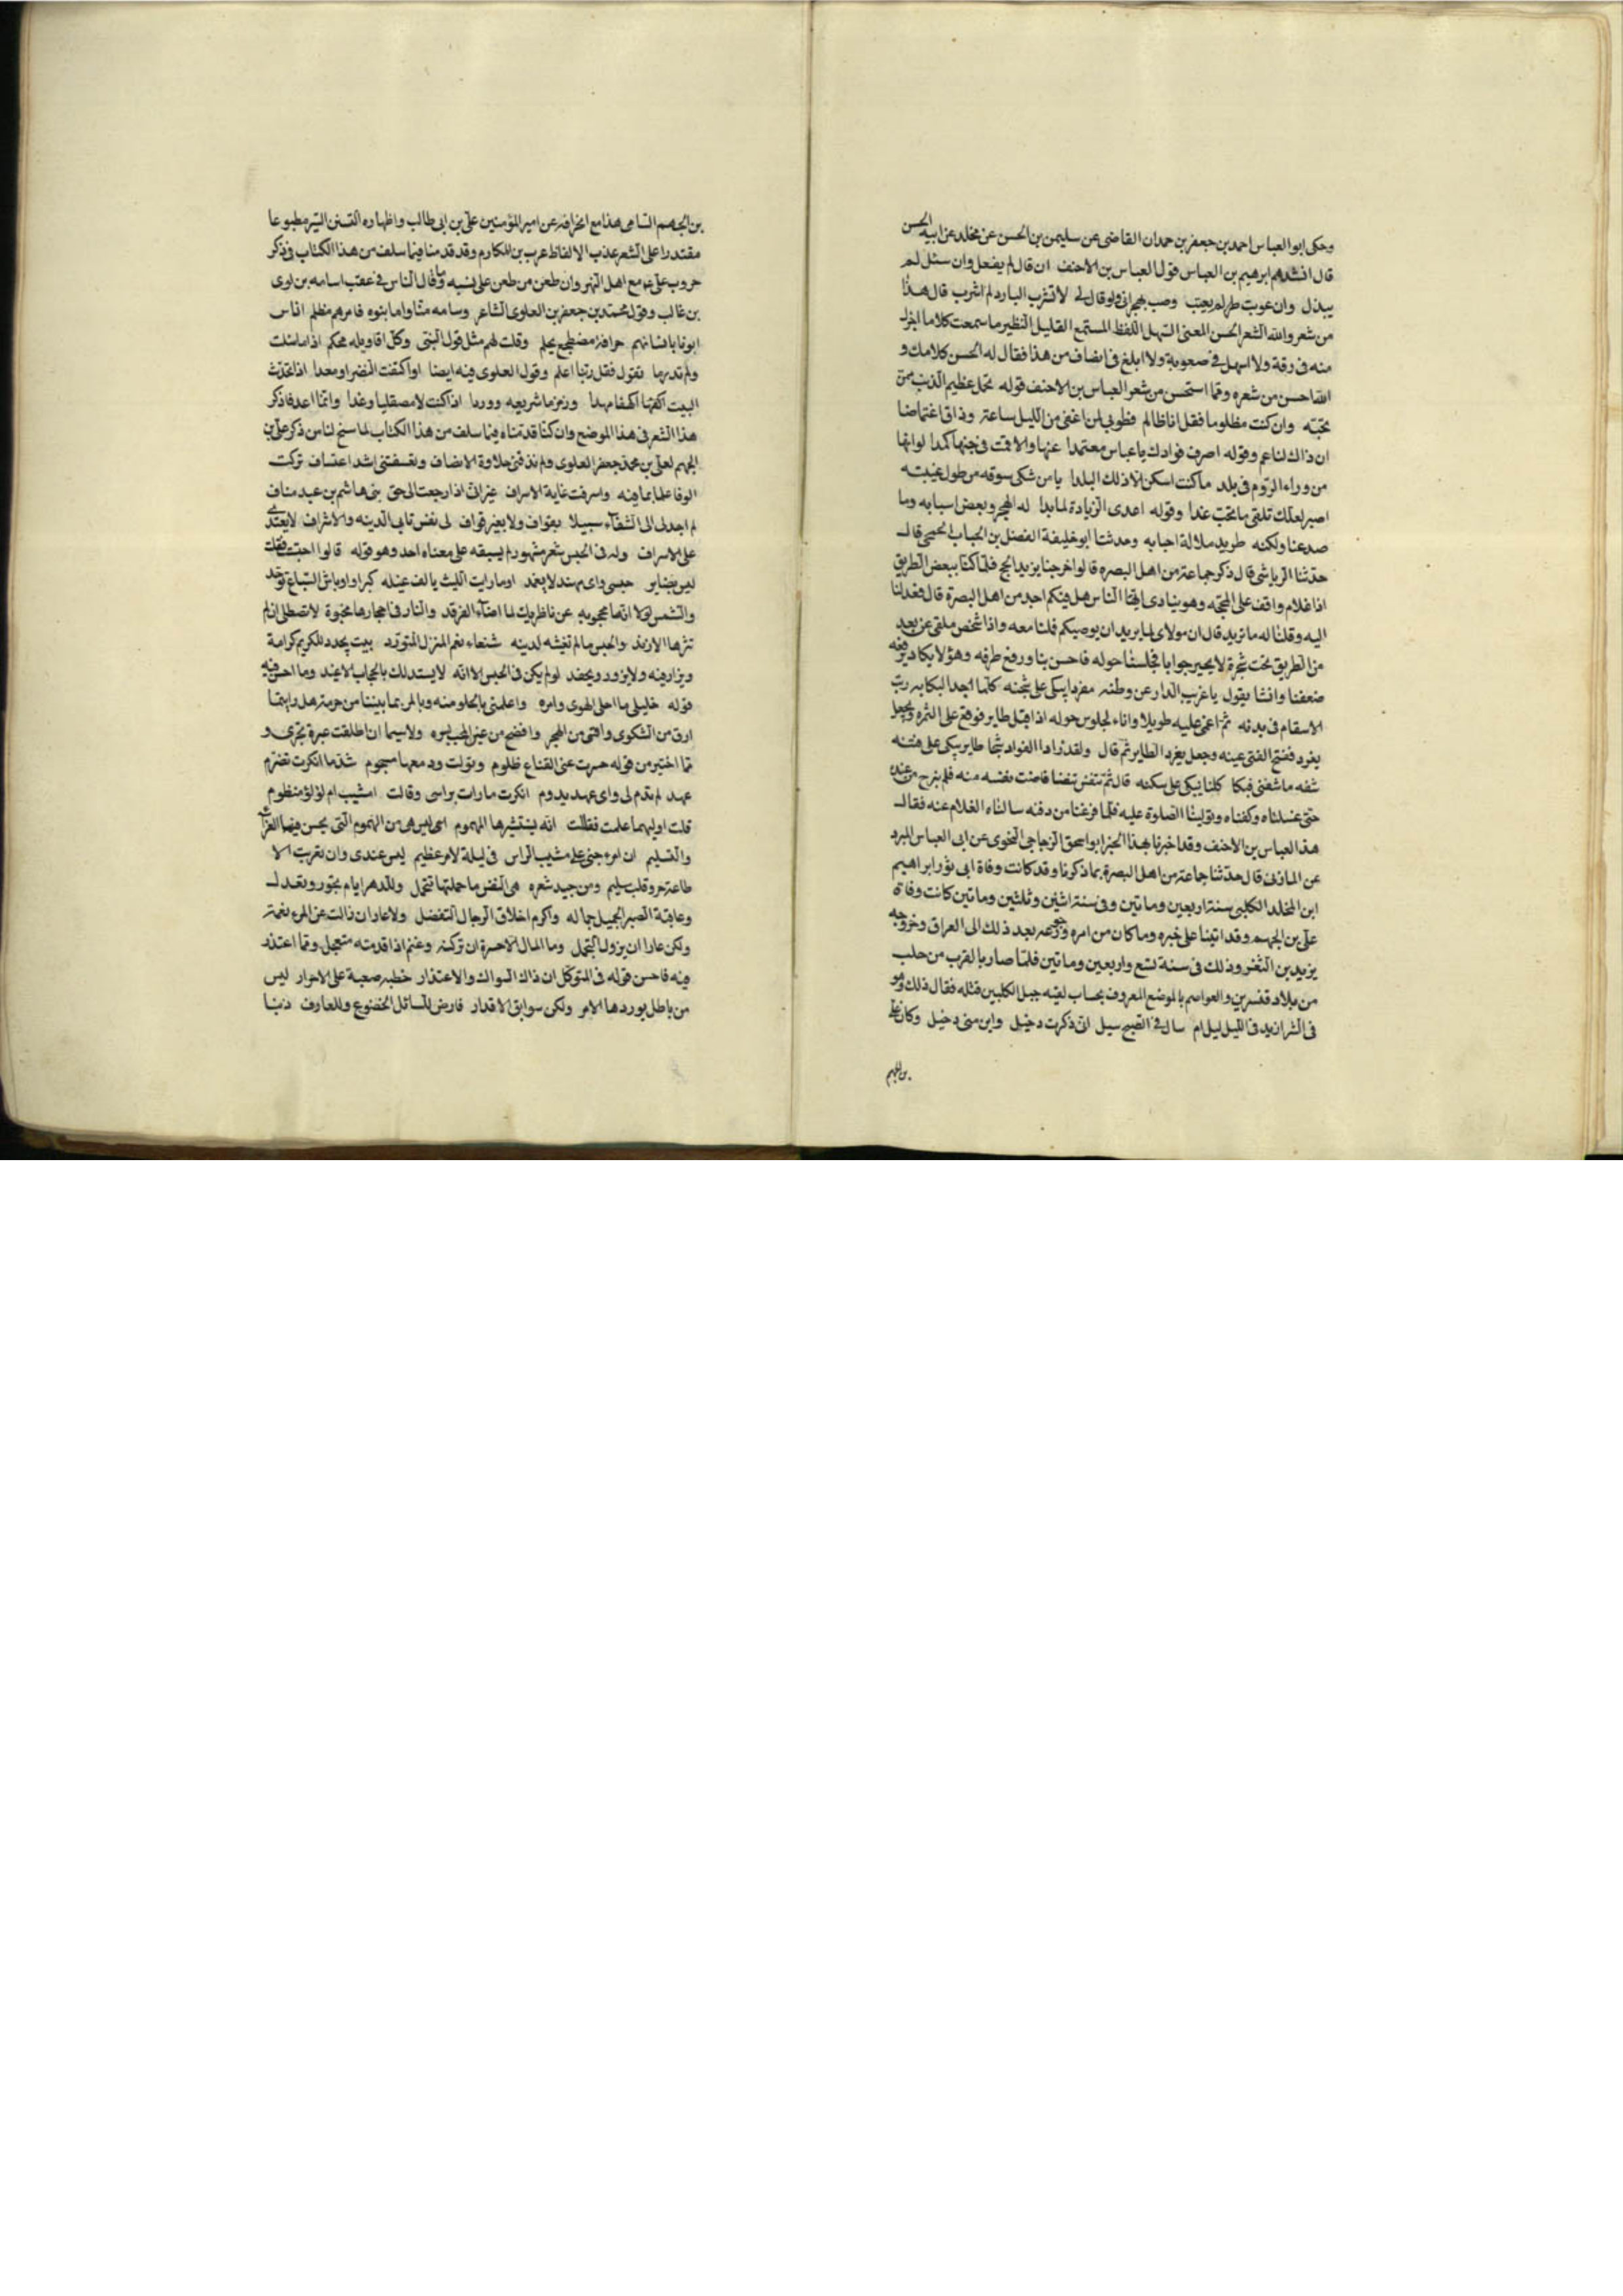 وحكى ابو العباس احمد بن جعفر بن حمدان القاضى عن سليمن بن الحسن عن مخلد عن ابيه الحسن
قال انشدهم ابرهيم بن العباس قول العباس بن الاحنف ان قال لم يفعل وان سئل لم
يبذل وان عوتب لم يعتب وصب بهجرانى ولو قال لى لا تشرب البارد لم اشرب قال هذا
من شعر والله الشعر الحسن المعنى السهل اللفظ المستمع القليل النظير ما سمعت كلاما اجزل
منه فى رقة ولا اسهل فى صعوبة ولا ابلغ فى انصاف من هذا فقال له الحسن كلامك و
الله احسن من شعره ومما استحسن من شعر العباس بن الاحنف قوله تحمل عظيم الذنب ممن
تحبه وان كنت مظلوما فقل انا ظالم فطوبى لمن اغفى من الليل ساعة وذاق اغتماضا
ان ذاك لناعم وقوله اصرف فوادك يا عباس معتمدا عنها والا فمت فى حبها كمدا لو انها
من وراء الروم فى بلد ما كنت اسكن الا ذلك البلدا يا من شكى سوقه من طول غيبته
اصبر لعلك تلقى ما تحب غدا وقوله اعدى الزيادة لما بدا له الهجر وبعض اسبابه وما
صد عنا ولكنه طريد ملالة احبابه وحدثنا ابو خليفة الفضل بن الحباب الجمحى قال
حدثنا الرياشى قال ذكر جماعة من اهل البصره قالوا خرجنا نريد الحج فلما كنا ببعض الطريق
اذا غلام واقف على المحجه وهو ينادى ايها الناس هل فيكم احد من اهل البصرة قال فعدلنا
اليه وقلنا له ما تريد قال ان مولاى لما به يريد ان يوصيكم فملنا معه واذا شخص ملقى عن بعد
من الطريق تحت شجرة لا يحير جوابا فجلسنا حوله فاحس بنا ورفع طرفه وهو لا يكاد يرفعه
ضعفا وانشا يقول يا غريب الدار عن وطنه مفردا يبكى على شجنه كلما جد البكا به دبت
الاسقام فى بدنه ثم اغمى عليه طويلا وانا لجلوس حوله اذ اقبل طاير فوقع على الشجره وجعل
يغرد ففتح الفتى عينه وجعل يغرد الطاير ثم قال ولقد زاد الفواد شجا طاير يبكى على فننه
شفه ما شفنى فبكا كلنا يبكى على سكنه قال ثم تنفس تنفسا فاضت نفسه منه فلم نبرح من عنده
حتى غسلناه وكفناه وتولينا الصلوة عليه فلما فرغنا من دفنه سالنا الغلام عنه فقال
هذا العباس بن الاحنف وقد اخبرنا بهذا الخبر ابو اسحق الزجاجى النحوى عن ابى العباس المبرد
عن المازنى قال حدثنا جماعة من اهل البصرة بما ذكرنا وقد كانت وفاة ابى ثور ابراهيم
ابن المخلد الكلبى سنة اربعين ومائتين وفى سنة اثنين وثلثين ومائتين كانت وفاة
على بن الجهم وقد اتينا على خبره وما كان من امره ورجوعه بعد ذلك الى العراق وخروجه
يريد بن الثغر وذلك فى سنة تسع واربعين ومائتين فلما صار بالقرب من حلب
من بلاد قنسرين والعواصم بالموضع المعروف بحساب لقيته خيل الكلبيين فقتله فقال ذلك وهو
فى الشر ازيد فى الليل ليل ام سال فى الصبح سيل انى ذكرت دجيل واين منى دجيل وكان على
بن الجهم
بن الجهم السامى هذا مع انحرافه عن امير المؤمنين على بن ابى طالب واظهاره التسنن مطبوعا
مقتدرا على الشعر عذب الالفاظ وقد قدمنا فيما سلف من هذا الكتاب فى ذكر
حروب على مع اهل النهر وان طعن من طعن على نسبه وما قال الناس فى عقب اسامه بن لوى
بن غالب وقول محمد بن جعفر بن العلوى الشاعر وسامه منا واما بنوه فامرهم مظلم اناس
اتونا بانسابهم خرافة مضطجع يحلم وقلت لهم مثل قول النبى وكل اقاويله محكم اذا ما سئلت
ولم تدر ما تقول فقل ربنا اعلم وقول العلوى فيه ايضا لو اكتنفت النضر او معدا اذ اتخذت
البيت وزمزما شريعه ووردا وانما اعد فاذكر
هذا الشعر فى هذا الموضع وان كنا قدمناه فيما سلف من هذا الكتاب لما سنح لنا من ذكر على بن
الجهم لعلى بن محمد جعفر العلوى ولم تذقنى حلاوة الانصاف وتعسفتنى اشد اعتساف تركت
الوفا علما بما فيه واسرفت غاية الاسراف غير انى اذا رجعت الى حق بنى هاشم بن عبد مناف
لم اجد لى الى الشفآء سبيلا بقواف ولا بغير قواف لى نفس تابى الدنيه والاشراف لا يعتدى
على الاسراف وله فى الحبس شعر مشهور لم يسبقه على معناه احد وهو قوله قالوا احتبست فقلت
ليس بضاير حبسى واى مهند لا يغمد اوما رايت الليث يالف غيله كبرا واوباش السباع تردد
والشمس لولا انها محجوبه عن ناظريك لما اضآء الفرقد والنار فى احجارها مخبوة لا تصطلى ان لم
تثرها الازند والحبس ما لم تغشه لدنيه شنعاء نعم المنزل المتورد بيت يجدد للكريم كرامة
ويزار فيه ولا يزور ويحفد لو لم يكن فى الحبس الا انه لا يستذلك بالحجاب الاعبد وما احسن فيه
قوله خليلى ما احلى الهوى وامره واعلمنى بالحلو منه وبالمر بما بيننا من حرمة هل رايتما
ارق من الشكوى واقسى من الهجر وافضح من عين المحب لسره ولاسيما ان اطلقت عبرة تجرى و
مما اختير من قوله حسرت عنى القناع ظلوم وتولت ودمعها مسجوم شد ما انكرت تصرم
عهد لم يدم لى واى عهد يدوم انكرت ما رات براسى وقالت امشيب ام لؤلؤ منظوم
قلت اوليهما علمت فقالت انه يستثيرها الهموم ليس هى من الهموم التى يحسن فيها العزا
والتسليم ان امر جنى على مشيب الراس فى ليلة لامر عظيم ليس عندى وان تغربت الا
طاعة حر وقلب سليم ومن جيد شعره هى النفس ما حملتها تتحمل وللدهر ايام تجور وتعدل
وعاقبة الصبر الجميل جماله واكرم اخلاق الرجال التفضل ولا عار ان زالت عن المرء نعمة
ولكن عارا ان يزول التجمل وما المال الا حسرة ان تركته وغنم اذا قدمته متعجل ومما اعتذر
فيه فاحسن قوله فى المتوكل ان ذاك السوال والاعتذار خطبه صعبة على الاحرار ليس
من باطل يوردها الامر ولكن سوابق الاقدار فارض للسائل الخضوع وللعارف ذنبا